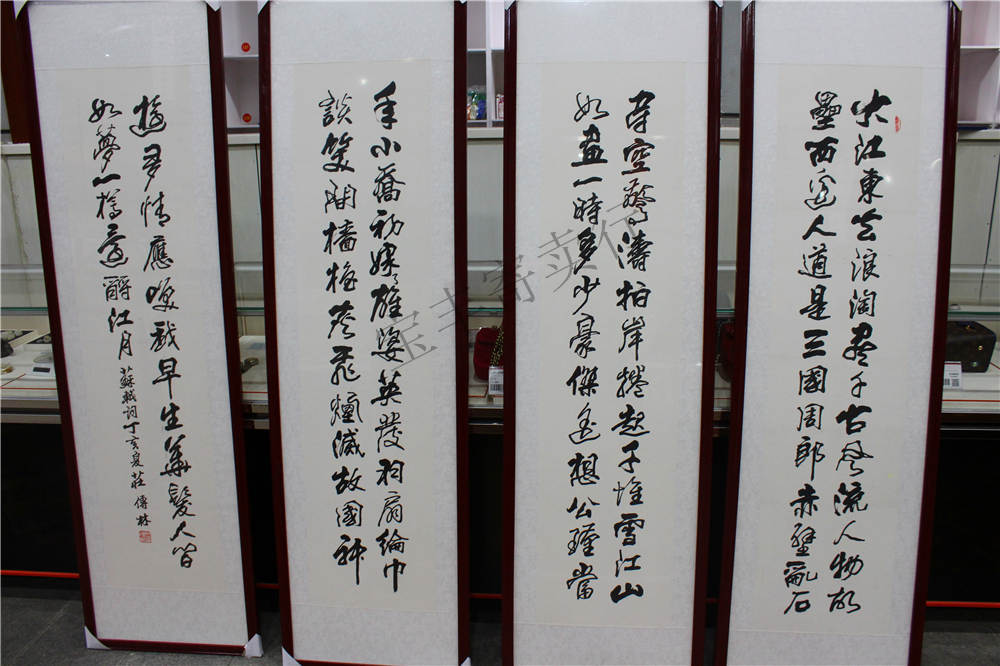 大江東去浪淘盡千古風流人物故
壘西邊人道是三國周郎赤壁亂石
穿空驚濤拍岸捲起千堆雪江山
如畫一時多少豪傑遙想公瑾當
年小喬初嫁了雄姿英發羽扇綸巾
談笑間檣櫓灰飛煙滅故國神
遊多情應笑我早生華髮人間
如夢一樽還酹江月
蘇軾詞丁亥夏莊傳林
宝丰寄卖行